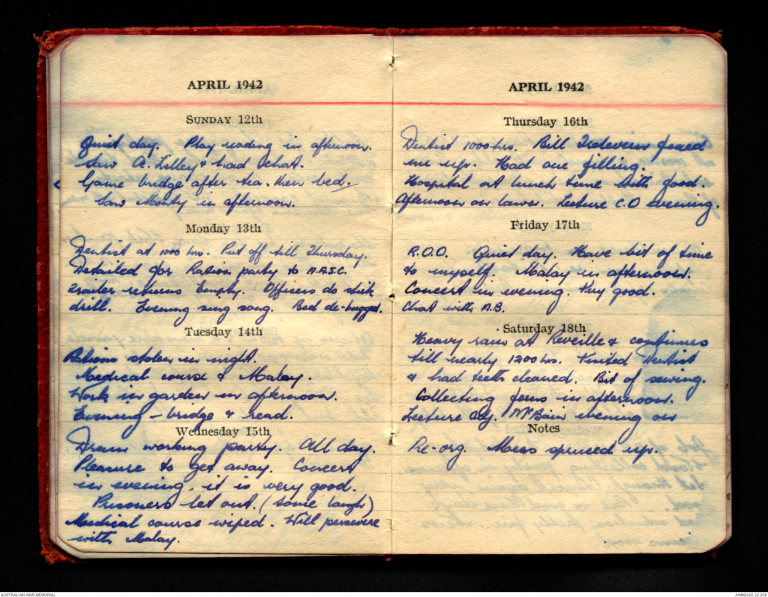 APRIL 1942
SUNDAY 12th
Quiet day. Play reading in afternoon.
Saw A. Lilley & had chat.
Game bridge after tea, then bed.
Saw Monty in afternoon.
Monday 13th
Dentist at 1000 hrs. Put off till Thursday.
Detailed for Ration party to A.A.S.C.
Trailer returns Empty. Officers do stick
drill. Evening sing song. Bed de-bugged.
Tuesday 14th
Rations stolen in night.
Medical course & Malay.
Work in garden in afternoon.
Evening – bridge & read.
Wednesday 15th
Drain working party. All day.
Pleasure to get away. Concert
in evening, it is very good.
Prisoners let out. (Some laugh)
Medical course wiped. Will persevere
with Malay.
APRIL 1942
Thursday 16th
Dentist 1000 hrs. Bill fixed
me up. Had one filling.
Hospital at lunch time with food.
Afternoon on lawn. Lecture C.O evening.
Friday 17th
R.O.O. Quiet day. Have bit of time
to myself. Malay in afternoon.
Concert in evening. Very good.
Chat with A.B.
Saturday 18th
Heavy rain at Reveille & continues
till nearly 1200 hrs. Visited Dentist
& had teeth cleaned. Bit of sewing.
Collecting ferns in afternoon.
Lecture Adj. McBain evening on
Notes
Re-org. Mess spruced up.
AUSTRALIAN WAR MEMORIAL